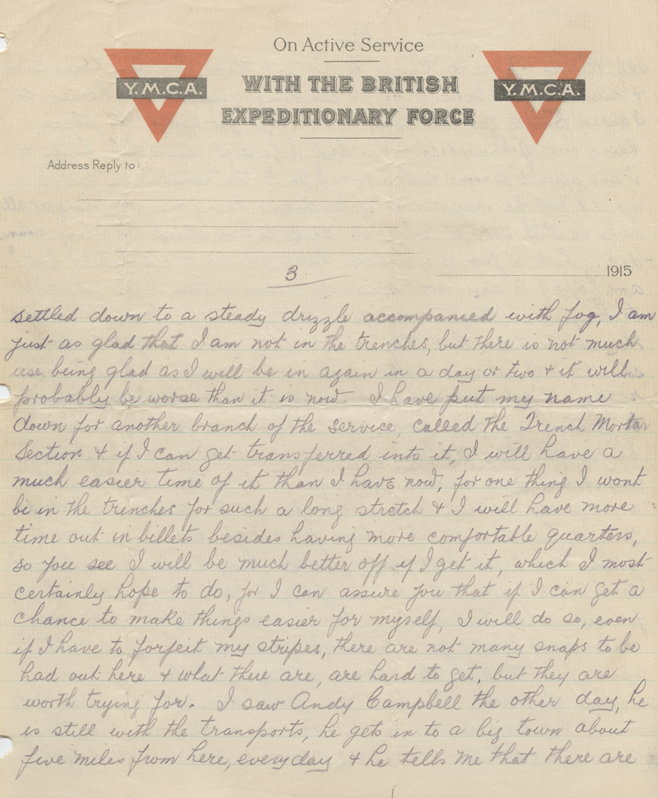 On Active Service
WITH THE BRITISH
EXPEDITIONARY FORCE
Y.M.C.A.
Y.M.C.A.
Address Reply to:
3
1915
settled down to a steady drizzle accompanied with fog, I am
just as glad that I am not in the trenches, but there is not much
use being glad as I will be in again in a day or two & it will
probably be worse than it is now. I have put my name
down for another branch of the service, called the Trench Mortar
Section & if I can get transferred into it, I will have a
much easier time of it than I have now, for one thing I wont
be in the trenches for such a long stretch & I will have more
time out in billets besides having more comfortable quarters,
so you see I will be much better off if I get it, which I most
certainly hope to do, for I can assure you that if I can get a
chance to make things easier for myself, I will do so, even
if I have to forfeit my stripes, there are not many snaps to be
had out here & what there are, are hard to get, but they are
worth trying for. I saw Andy Campbell the other day, he
is still with the transports, he gets in to a big town about
five miles from here, everyday & he tells me that there are